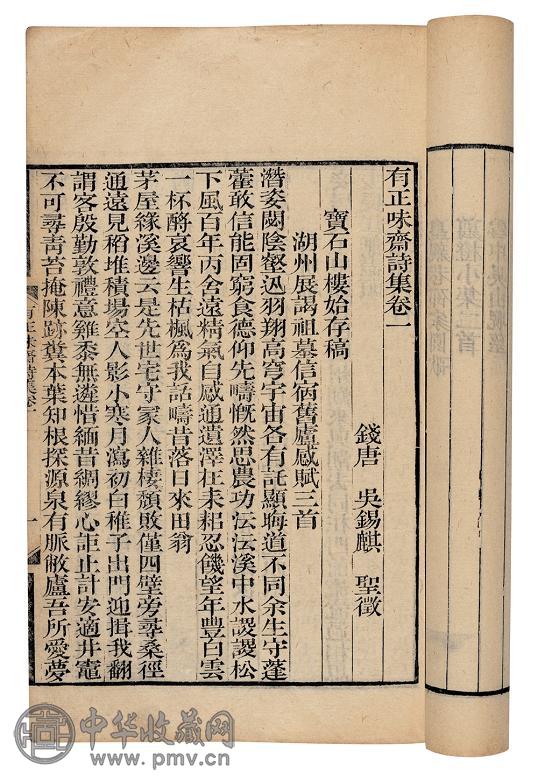 有正味齋詩集卷一
錢唐 吳錫麒 聖徵
寶石山樓始存稿
湖州展謁祖墓信宿舊廬感賦三首
潛委閟陰壑迅羽翔高穹宇宙各有託顯晦道不同余生守蓬
藋敢信能固窮食德仰先疇慨然思農功沄沄溪中水謖謖松
下風百年丙舍遠精氣自感通遺澤在耒耜忍饑望年豐白雲
一杯酹哀響生枯楓為我話疇昔落日來田翁
茅屋緣溪邊云是先世宅守家人雜棲頹敗僅四壁旁尋桑徑
通遠見稻堆積場空人影小寒月瀉初白稚子出門迎揖我翻
謂客殷勤敦禮意雞黍無遑惜緬昔綢繆心詎止計安適井竈
不可尋青苔掩陳跡糞本葉知根探源泉有脈敝廬吾所愛夢
有正味齋詩集卷一
一
中华收藏网
www.pmv.cn